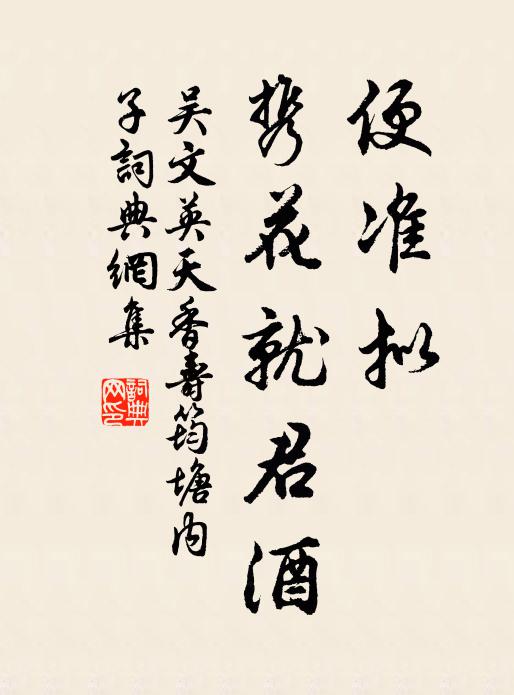 便准拟
携花就君酒
吴文英天香壽筠塘内
子詞典網集
詞典网印